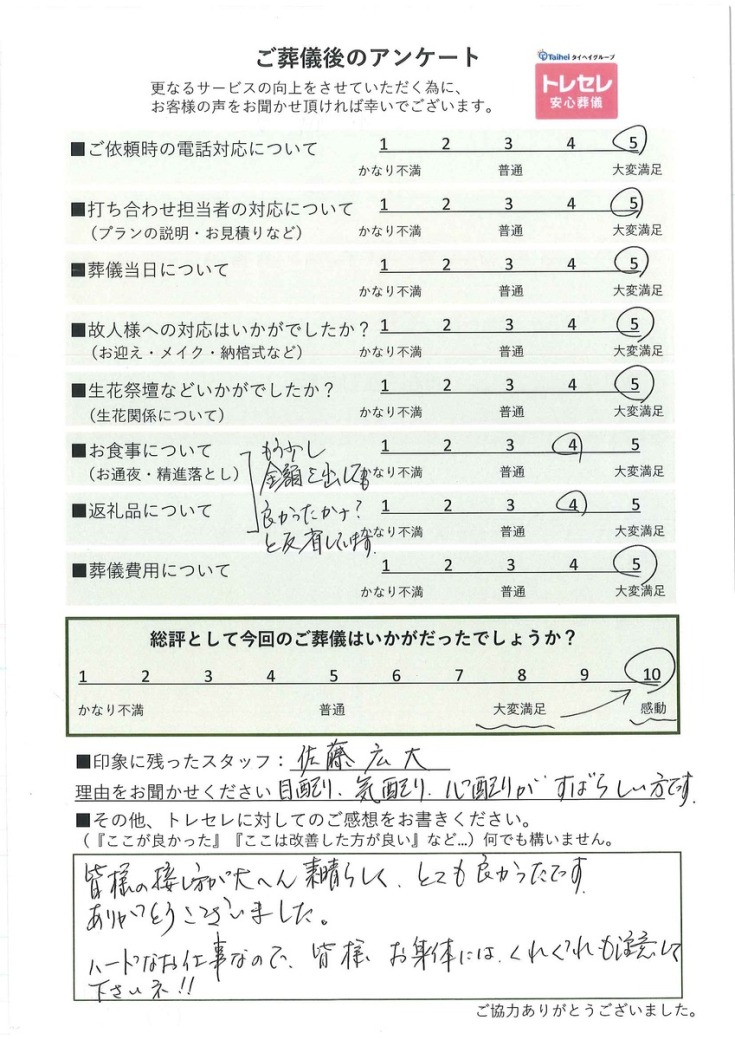 ご葬儀後のアンケート
Taihei タイヘイグループ
トレセレ
安心葬儀
更なるサービスの向上をさせていただく為に、
お客様の声をお聞かせ頂ければ幸いでございます。
■ご依頼時の電話対応について 1 2 3 4 5
かなり不満 普通 大変満足
■打ち合わせ担当者の対応について 1 2 3 4 5
（プランの説明・お見積りなど） かなり不満 普通 大変満足
■葬儀当日について 1 2 3 4 5
かなり不満 普通 大変満足
■故人様への対応はいかがでしたか？ 1 2 3 4 5
（お迎え・メイク・納棺式など） かなり不満 普通 大変満足
■生花祭壇などいかがでしたか？ 1 2 3 4 5
（生花関係について） かなり不満 普通 大変満足
■お食事について もう少し 1 2 3 4 5
（お通夜・精進落とし） 金額を出しても かなり不満 普通 大変満足
■返礼品について 良かったかナ？ 1 2 3 4 5
と反省しています. かなり不満 普通 大変満足
■葬儀費用について 1 2 3 4 5
かなり不満 普通 大変満足
総評として今回のご葬儀はいかがだったでしょうか？
1 2 3 4 5 6 7 8 9 10
かなり不満 普通 大変満足 感動
■印象に残ったスタッフ： 佐藤 広大
理由をお聞かせください 目配り、気配り、心配りが すばらしい方です.
■その他、トレセレに対してのご感想をお書きください。
（『ここが良かった』『ここは改善した方が良い』など...）何でも構いません。
皆様の接し方が大へん 素晴らしく、とても良かったです.
ありがとうございました。
ハードなお仕事なので、皆様 お身体には、くれぐれも注意して
下さいネ!!
ご協力ありがとうございました。